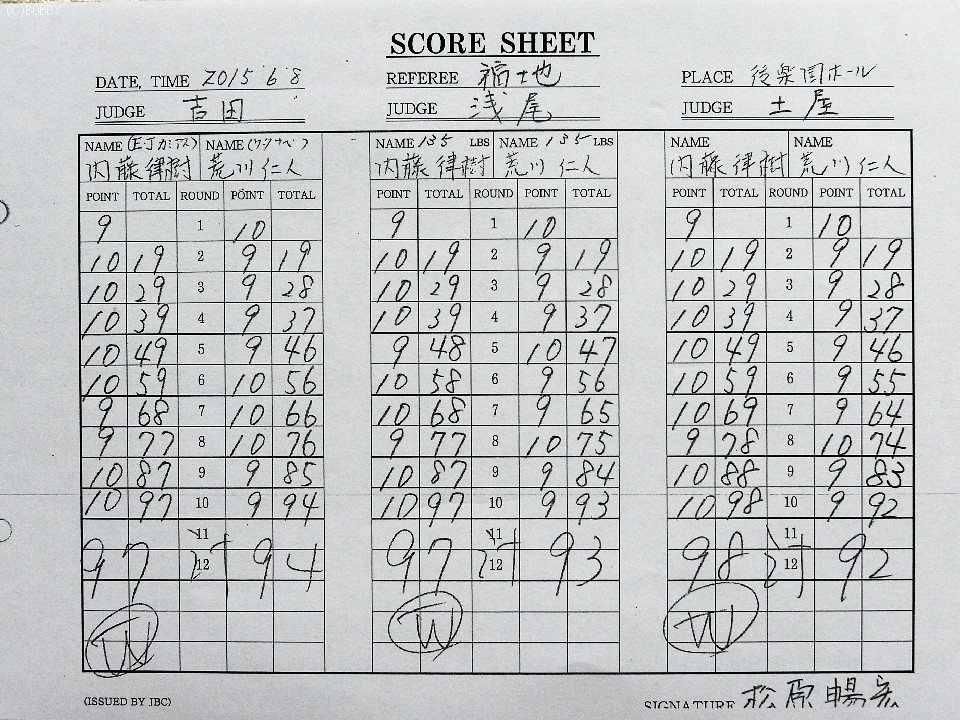 (C)BOBBY
SCORE SHEET
DATE, TIME 2015 6 8 REFEREE 福地 PLACE 後楽園ホール
JUDGE 吉田 JUDGE 浅尾 JUDGE 土屋
NAME (EJカシアス) NAME (ワタナベ) NAME 135 LBS NAME 135 LBS NAME NAME
内藤律樹 荒川仁人 内藤律樹 荒川仁人 内藤律樹 荒川仁人
POINT TOTAL ROUND POINT TOTAL POINT TOTAL ROUND POINT TOTAL POINT TOTAL ROUND POINT TOTAL
9 1 10 9 1 10 9 1 10
10 19 2 9 19 10 19 2 9 19 10 19 2 9 19
10 29 3 9 28 10 29 3 9 28 10 29 3 9 28
10 39 4 9 37 10 39 4 9 37 10 39 4 9 37
10 49 5 9 46 9 48 5 10 47 10 49 5 9 46
10 59 6 10 56 10 58 6 9 56 10 59 6 9 55
9 68 7 10 66 10 68 7 9 65 10 69 7 9 64
9 77 8 10 76 9 77 8 10 75 9 78 8 10 74
10 87 9 9 85 10 87 9 9 84 10 88 9 9 83
10 97 10 9 94 10 97 10 9 93 10 98 10 9 92
11 11 11
97 計 12 94 97 計 12 93 98 計 12 92
W W W
(ISSUED BY JBC) SIGNATURE 松原暢宏